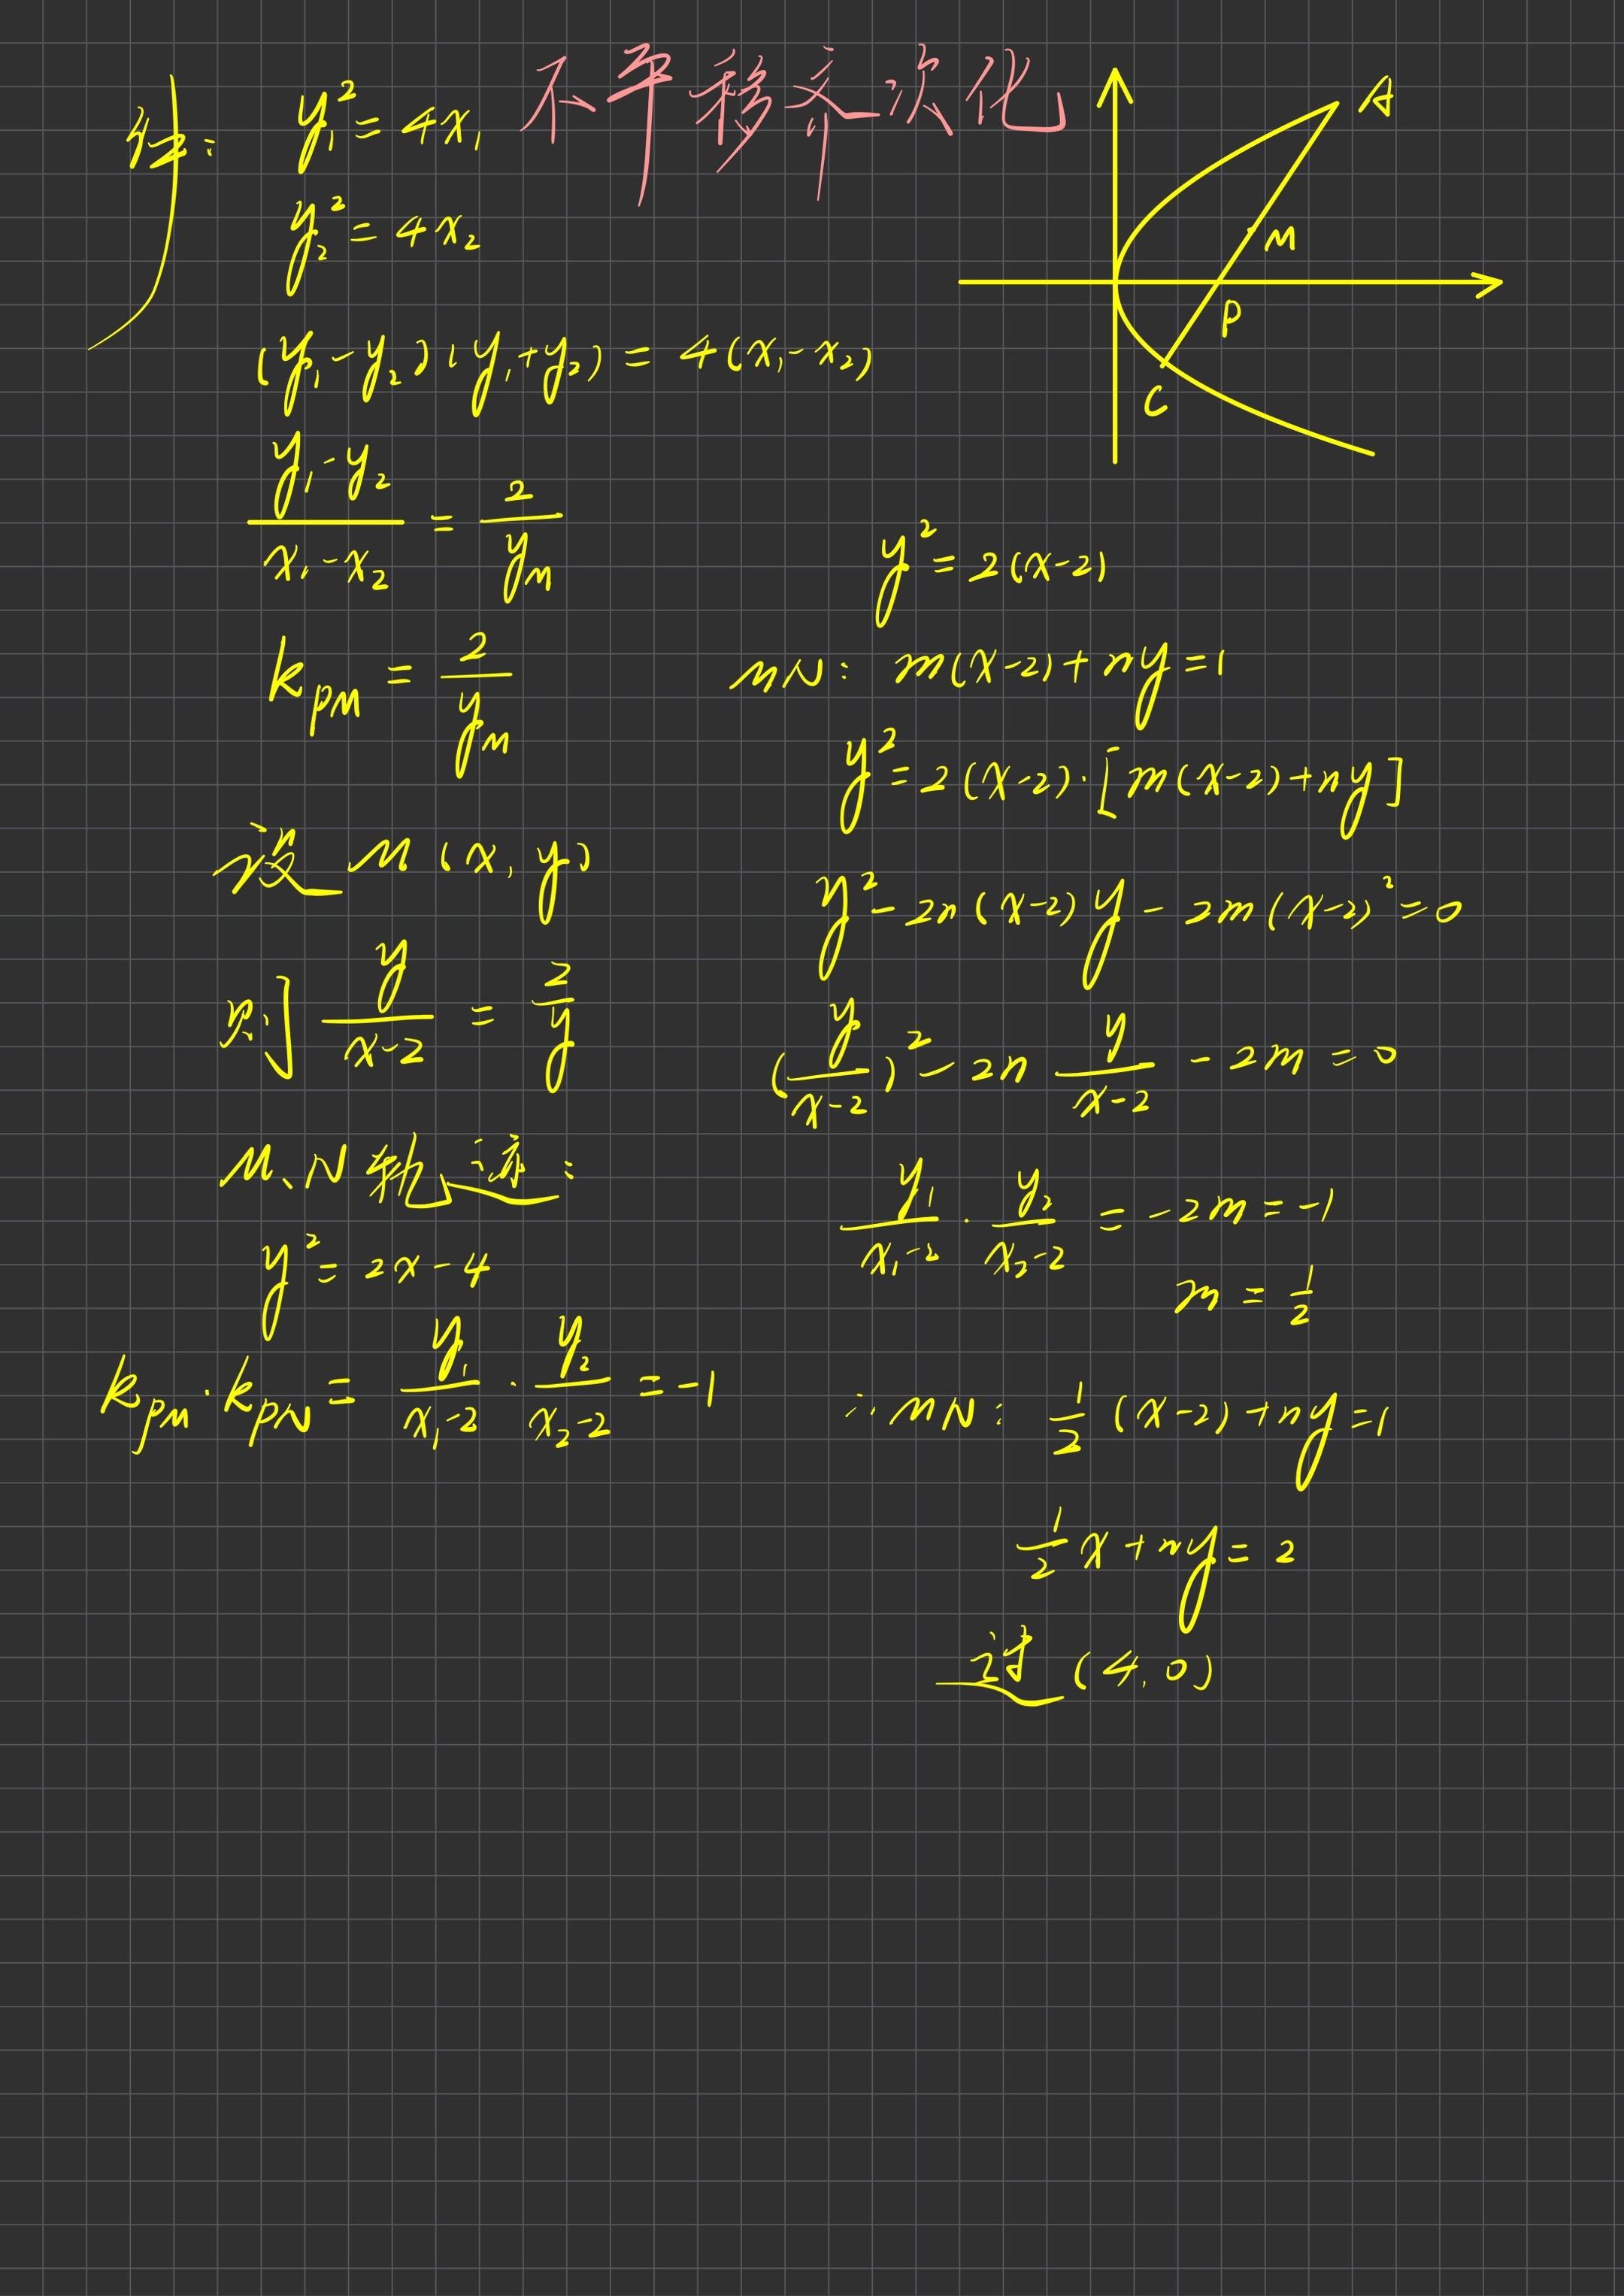 不平移齐次化
y₁² = 4x₁
y₂² = 4x₂
(y₁-y₂)(y₁+y₂) = 4(x₁-x₂)
(y₁-y₂)/(x₁-x₂) = 2/y_M
k_PM = 2/y_M
设 M(x, y)
则 y/(x-2) = 2/y
M、N轨迹:
y² = 2x-4
k_PM · k_PN = y₁/(x₁-2) · y₂/(x₂-2) = -1
A
M
P
C
y² = 2(x-2)
MN: m(x-2)+ny=1
y² = 2(x-2)·[m(x-2)+ny]
y² - 2n(x-2)y - 2m(x-2)² = 0
(y/(x-2))² - 2n y/(x-2) - 2m = 0
y₁/(x₁-2) · y₂/(x₂-2) = -2m = -1
m = 1/2
∴ MN: 1/2 (x-2)+ny=1
1/2 x+ny = 2
过 (4, 0)